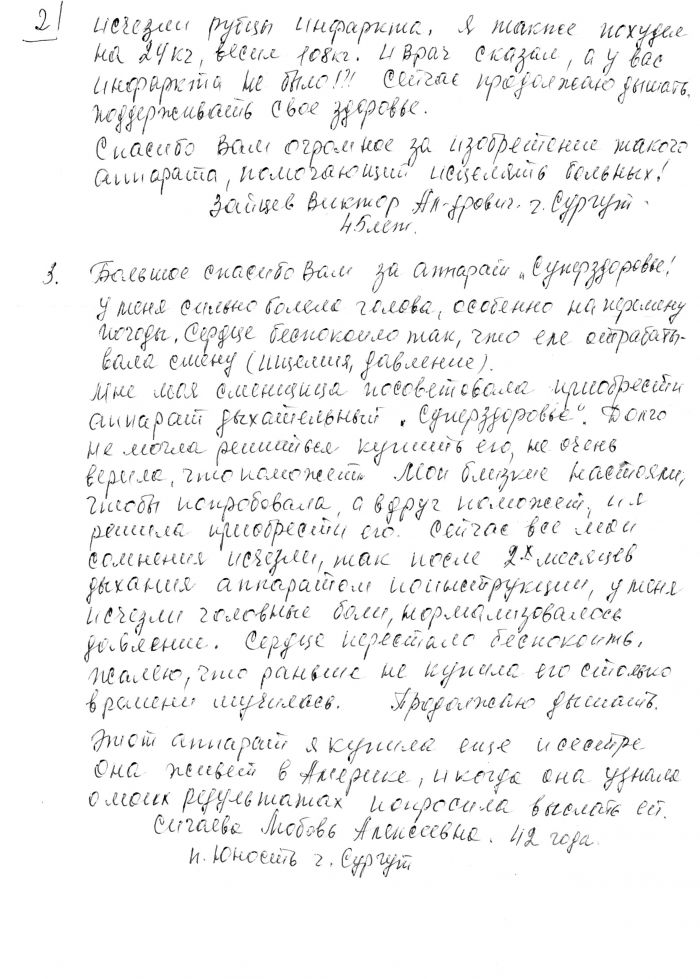 2)
исчезли рубцы инфаркта. Я также похудел
на 24 кг, весил 108 кг. И врач сказал, а у вас
инфаркта не было!?! Сейчас продолжаю дышать,
поддерживать свое здоровье.
Спасибо Вам огромное за изобретение такого
аппарата, помогающий исцелять больных!
Зайцев Виктор Ал-дрович. г. Сургут.
45 лет.
3. Большое спасибо Вам за аппарат „Суперздоровье"!
У меня сильно болела голова, особенно на перемену
погоды. Сердце беспокоило так, что еле отрабаты-
вала смену (ишемия, давление).
Мне моя сменщица посоветовала приобрести
аппарат дыхательный „Суперздоровье". Долго
не могла решиться купить его, не очень
верила, что поможет. Мои близкие настояли,
чтобы попробовала, а вдруг поможет, и я
решила приобрести его. Сейчас все мои
сомнения исчезли, так после 2х месяцев
дыхания аппаратом по инструкции, у меня
исчезли головные боли, нормализовалось
давление. Сердце перестало беспокоить,
жалею, что раньше не купила его столько
времени мучилась. Продолжаю дышать.
Этот аппарат я купила еще и сестре
она живет в Америке, и когда она узнала
о моих результатах попросила выслать ей.
Сигаева Любовь Алексеевна. 42 года.
п. Юность г. Сургут